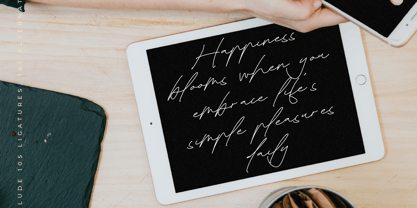 Happiness
blooms when you
embrace life's
simple pleasures
daily
LUDE 105 LIGATURES